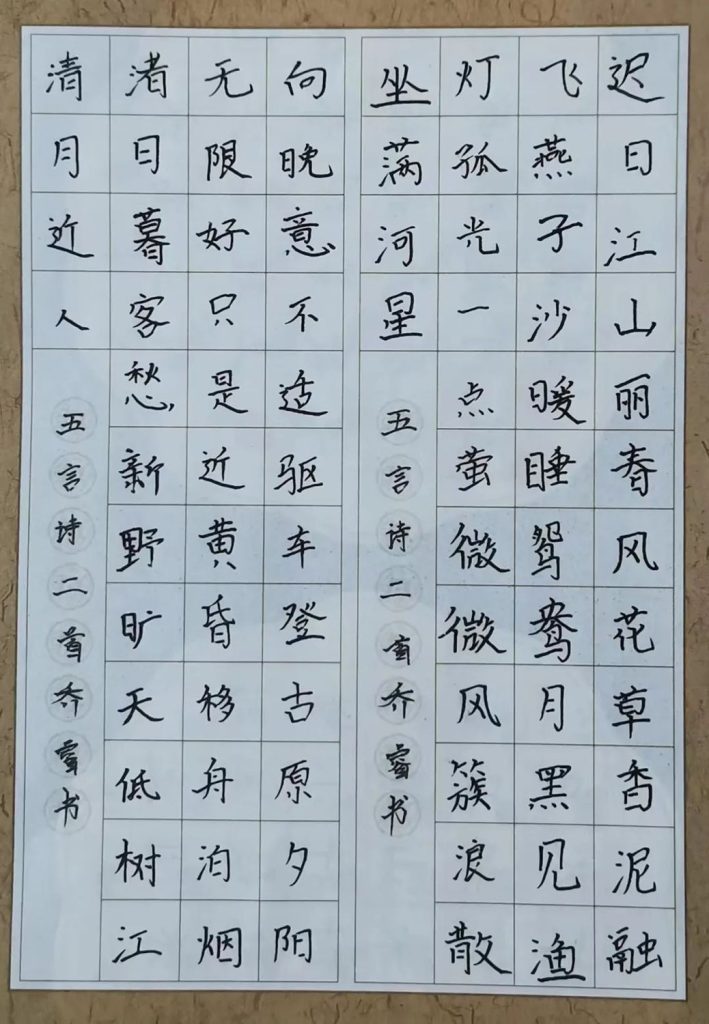 迟日江山丽春风花草香泥融
飞燕子沙暖睡鸳鸯月黑见渔
灯孤光一点萤微微风簇浪散
坐满河星
五言诗二首乔睿书
向晚意不适驱车登古原夕阳
无限好只是近黄昏移舟泊烟
渚日暮客愁新野旷天低树江
清月近人
五言诗二首乔睿书